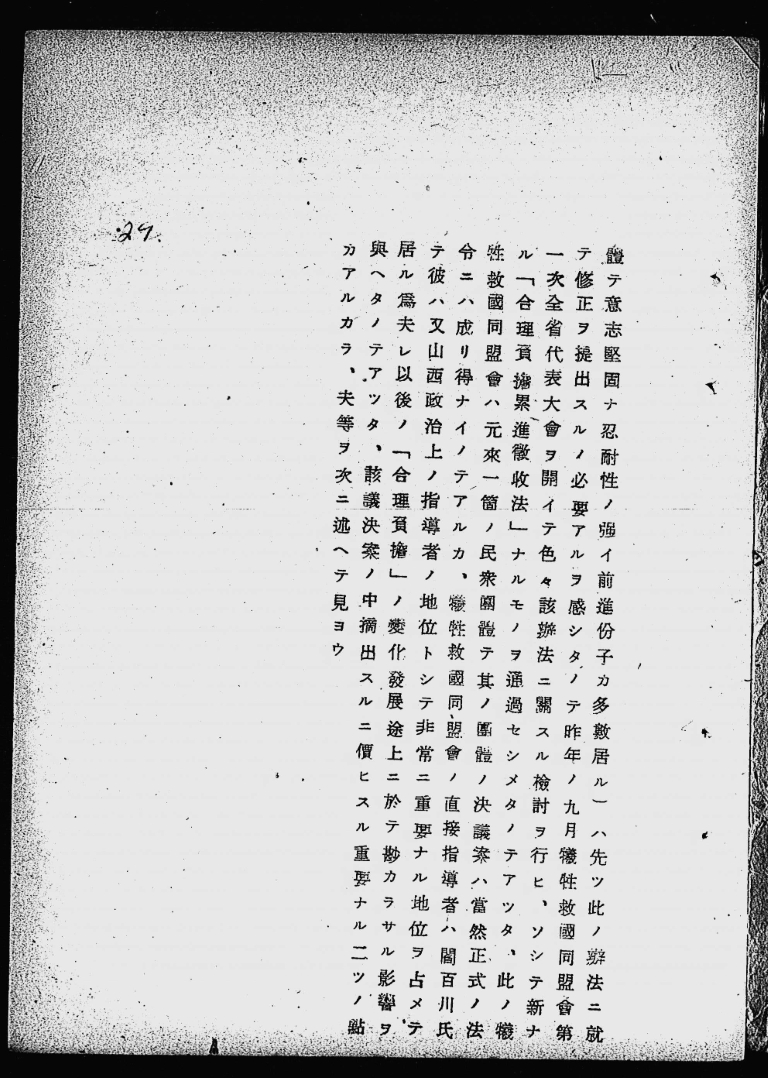 體テ意志堅固ナ忍耐性ノ强イ前進份子カ多數居ル)ハ先ツ此ノ辦法ニ就
テ修正ヲ提出スルノ必要アルヲ感シタノテ昨年ノ九月犧牲救國同盟會第
一次全省代表大會ヲ開イテ色々該辦法ニ關スル檢討ヲ行ヒ、ソシテ新ナ
ル「合理負擔累進徵收法」ナルモノヲ通過セシメタノテアツタ、此ノ犧
牲救國同盟會ハ元來一箇ノ民衆團體テ其ノ團體ノ決議案ハ當然正式ノ法
令ニハ成リ得ナイノテアルカ、犧牲救國同盟會ノ直接指導者ハ閻百川氏
テ彼ハ又山西政治上ノ指導者ノ地位トシテ非常ニ重要ナル地位ヲ占メテ
居ル爲夫レ以後ノ「合理負擔」ノ變化發展途上ニ於テ尠カラサル影響ヲ
與ヘタノテアツタ、該議決案ノ中摘出スルニ價ヒスル重要ナル二ツノ點
カアルカラ、夫等ヲ次ニ述ヘテ見ヨウ
29.